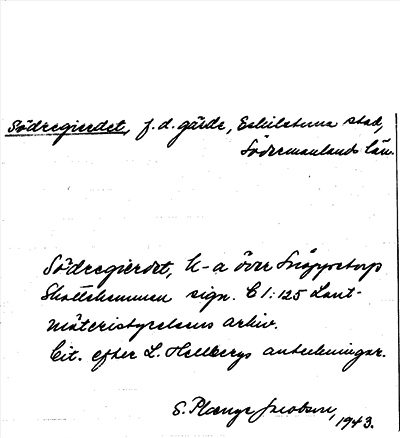 Södregierdet, f.d. gärde, Eskilstuna stad,
Södermanlands län.
Södregierdet, k-a över Snöppetorp
Skattehemmen sign. C 1:125 Lant-
mäteristyrelsens arkiv.
Cit. efter L. Hellbergs anteckningar.
S. Jacobson, 1943.